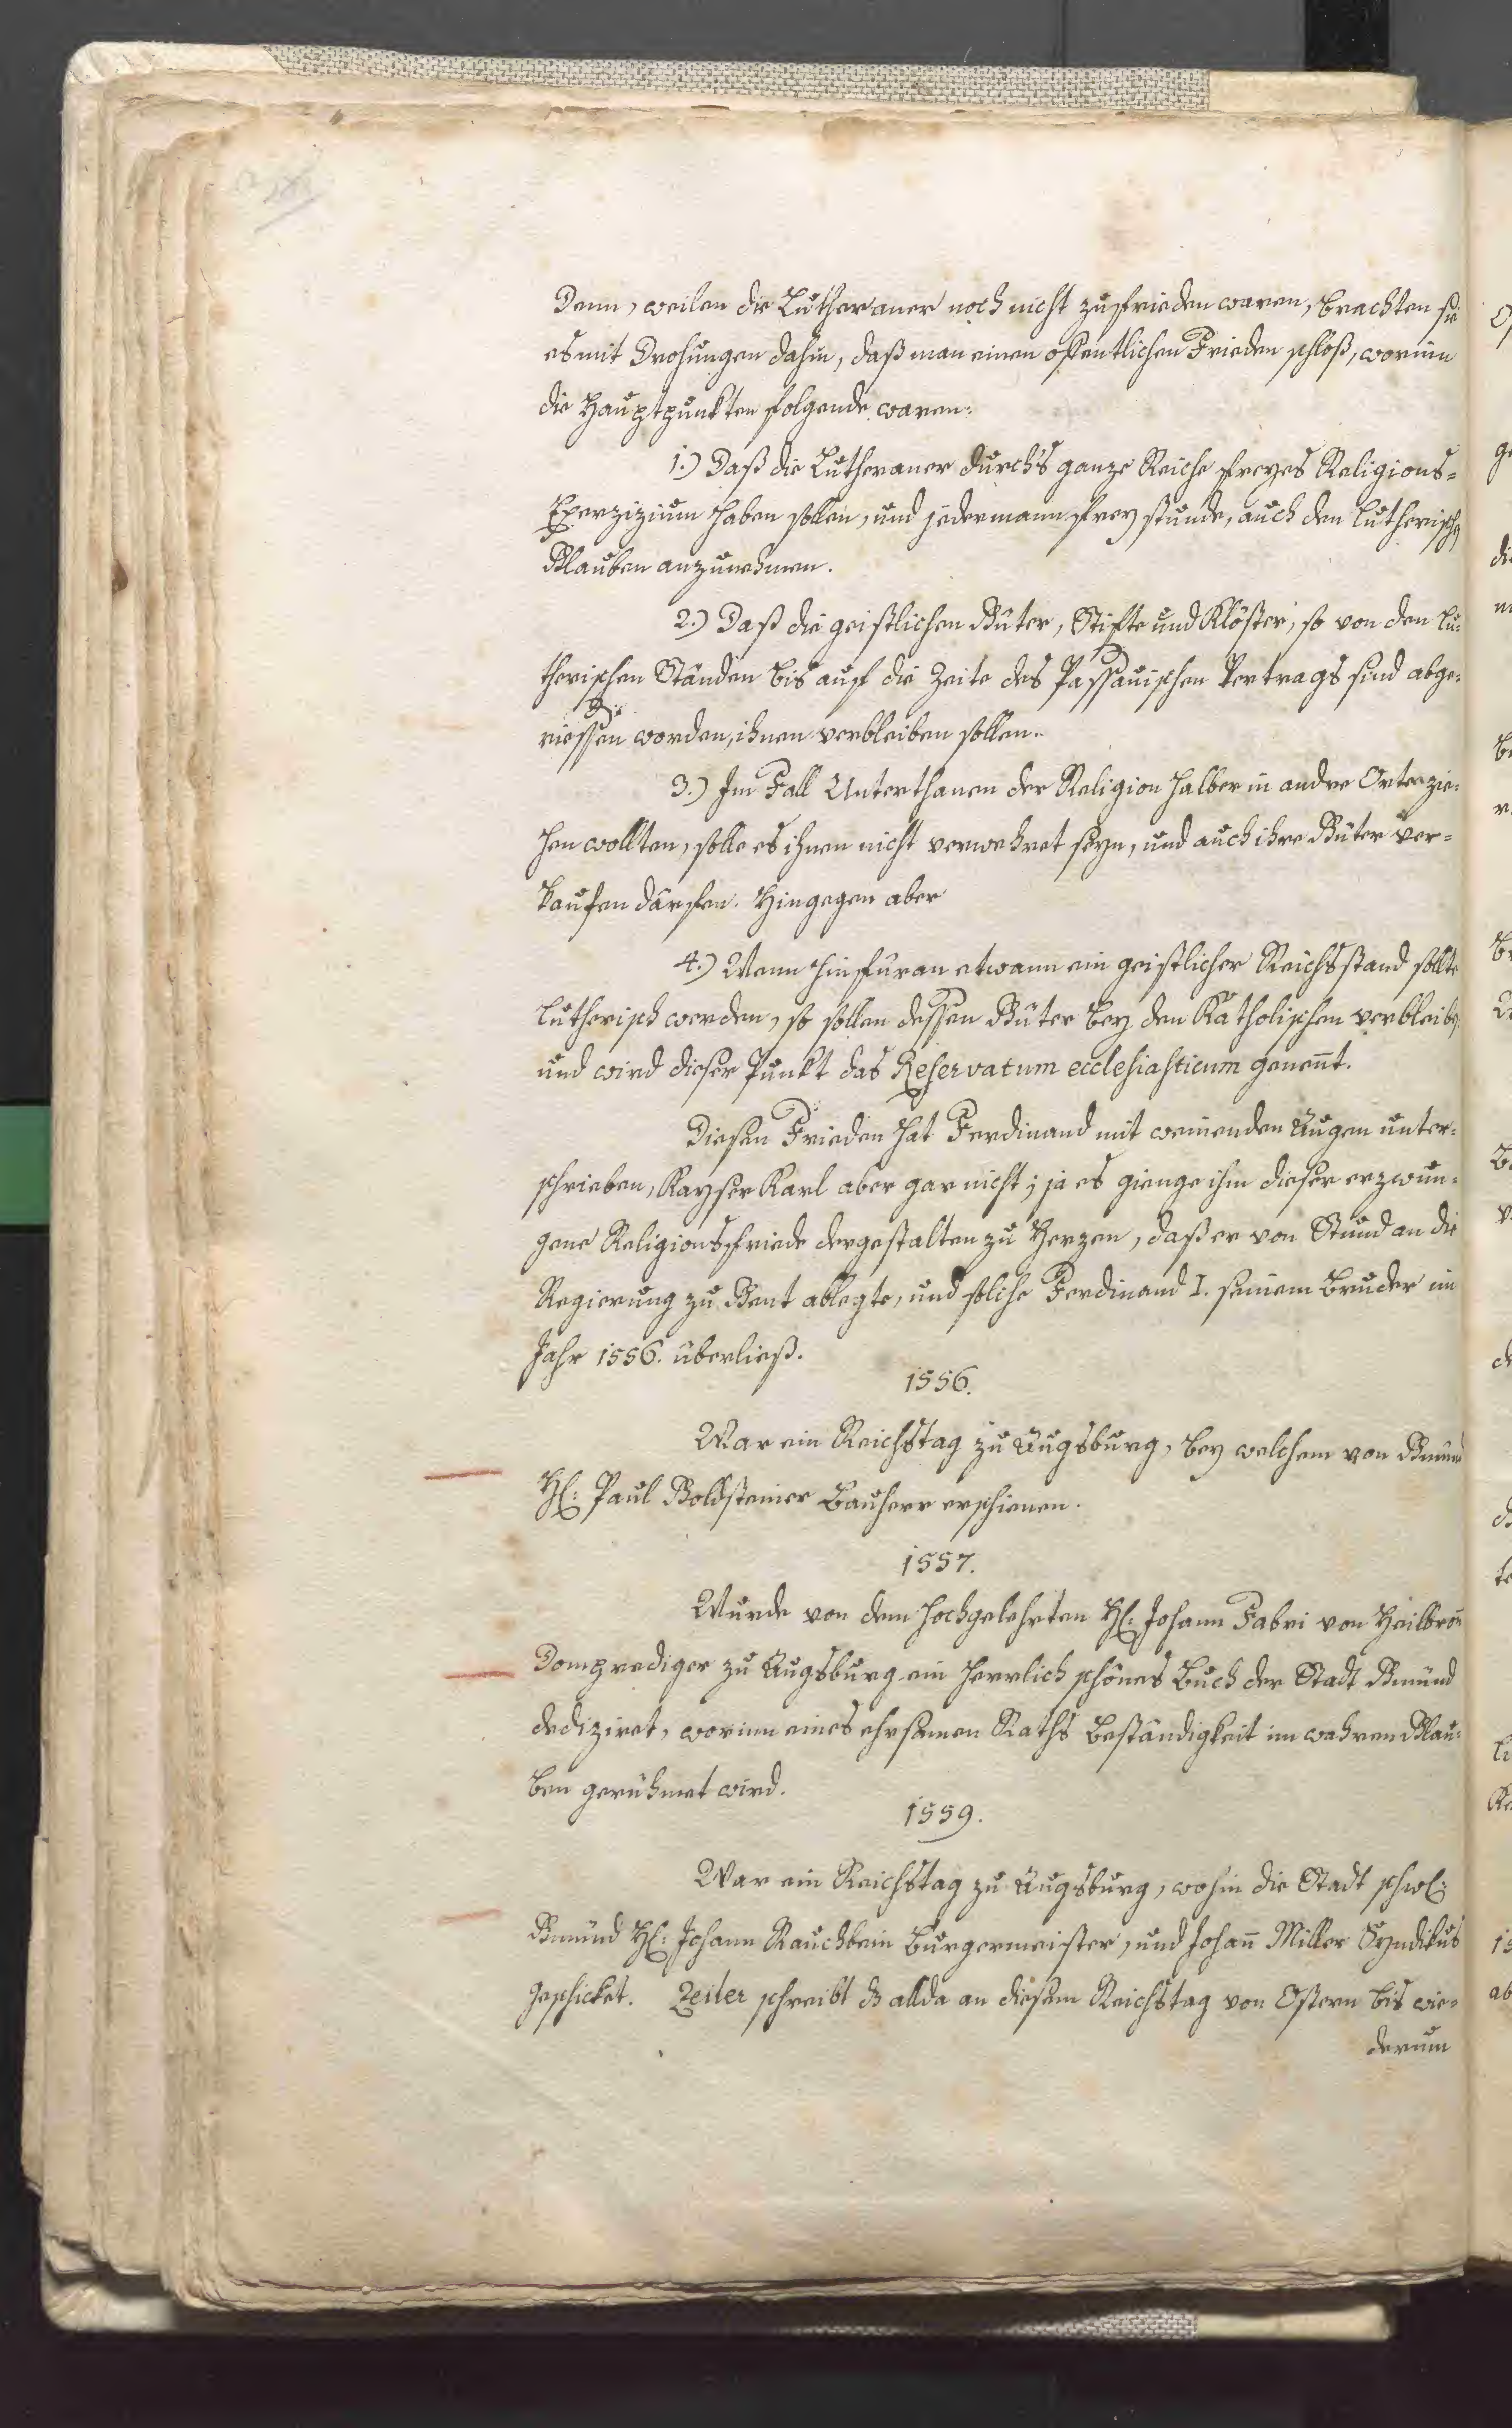 Denn, weilen die Lutheraner noch nicht zufrieden waren, brachten sie
es mit Drohungen dahin, daß man einen offentlichen Frieden schloß, worinn
die Hauptpunkten folgende waren:
1.) Daß die Lutheraner durch's ganze Reiche freyes Religions=
Exerzizium haben sollen, und jedermann frey stunde, auch den lutherischen
Glauben anzunehmen.
2.) Daß die geistlichen Güter, Stifte und Klöster, so von den lu=
therischen Ständen bis auf die Zeite des Passauischen Vertrags sind abge=
riessen worden, ihnen verbleiben sollen.
3.) Im Fall Unterthanen der Religion halber in andre Orter zie=
hen wollten, solle es ihnen nicht verwehret seyn, und auch ihre Güter ver=
kaufen därfen. Hingegen aber
4.) Wenn hinfüran etwann ein geistlicher Reichsstand sollte
lutherisch werden, so sollen dessen Güter bey den Katholischen verbleiben
und wird dieser Punkt das Reservatum ecclesiasticum genennt.
Diesen Frieden hat Ferdinand mit weinenden Augen unter=
schrieben, Kayser Karl aber gar nicht; ja es gienge ihm dieser erzwun=
gene Religionsfriede dergestalten zu Herzen, daß er von Stund an die
Regierung zu Gent ablegte, und solche Ferdinand I. seinem Bruder im
Jahr 1556. überließ.
1556.
War ein Reichstag zu Augsburg, bey welchem von Gmünd
H: Paul Goldsteiner Bauherr erschienen.
1557.
Wurde von dem hochgelehrten H: Johann Fabri von Heilbron̄
Domprediger zu Augsburg ein herrlich schönes Buch der Stadt Gmünd
dediziret, worinn eines ehrsamen Raths Beständigkeit im wahren Glau=
ben gerühmet wird.
1559.
War ein Reichstag zu Augsburg, wohin die Stadt schw:
Gmünd H: Johann Rauchbein Burgermeister, und Johan̄ Miller Syndikus
geschicket. Zeiler schreibt ds allda an diesem Reichstag von Ostern bis wie=
derum